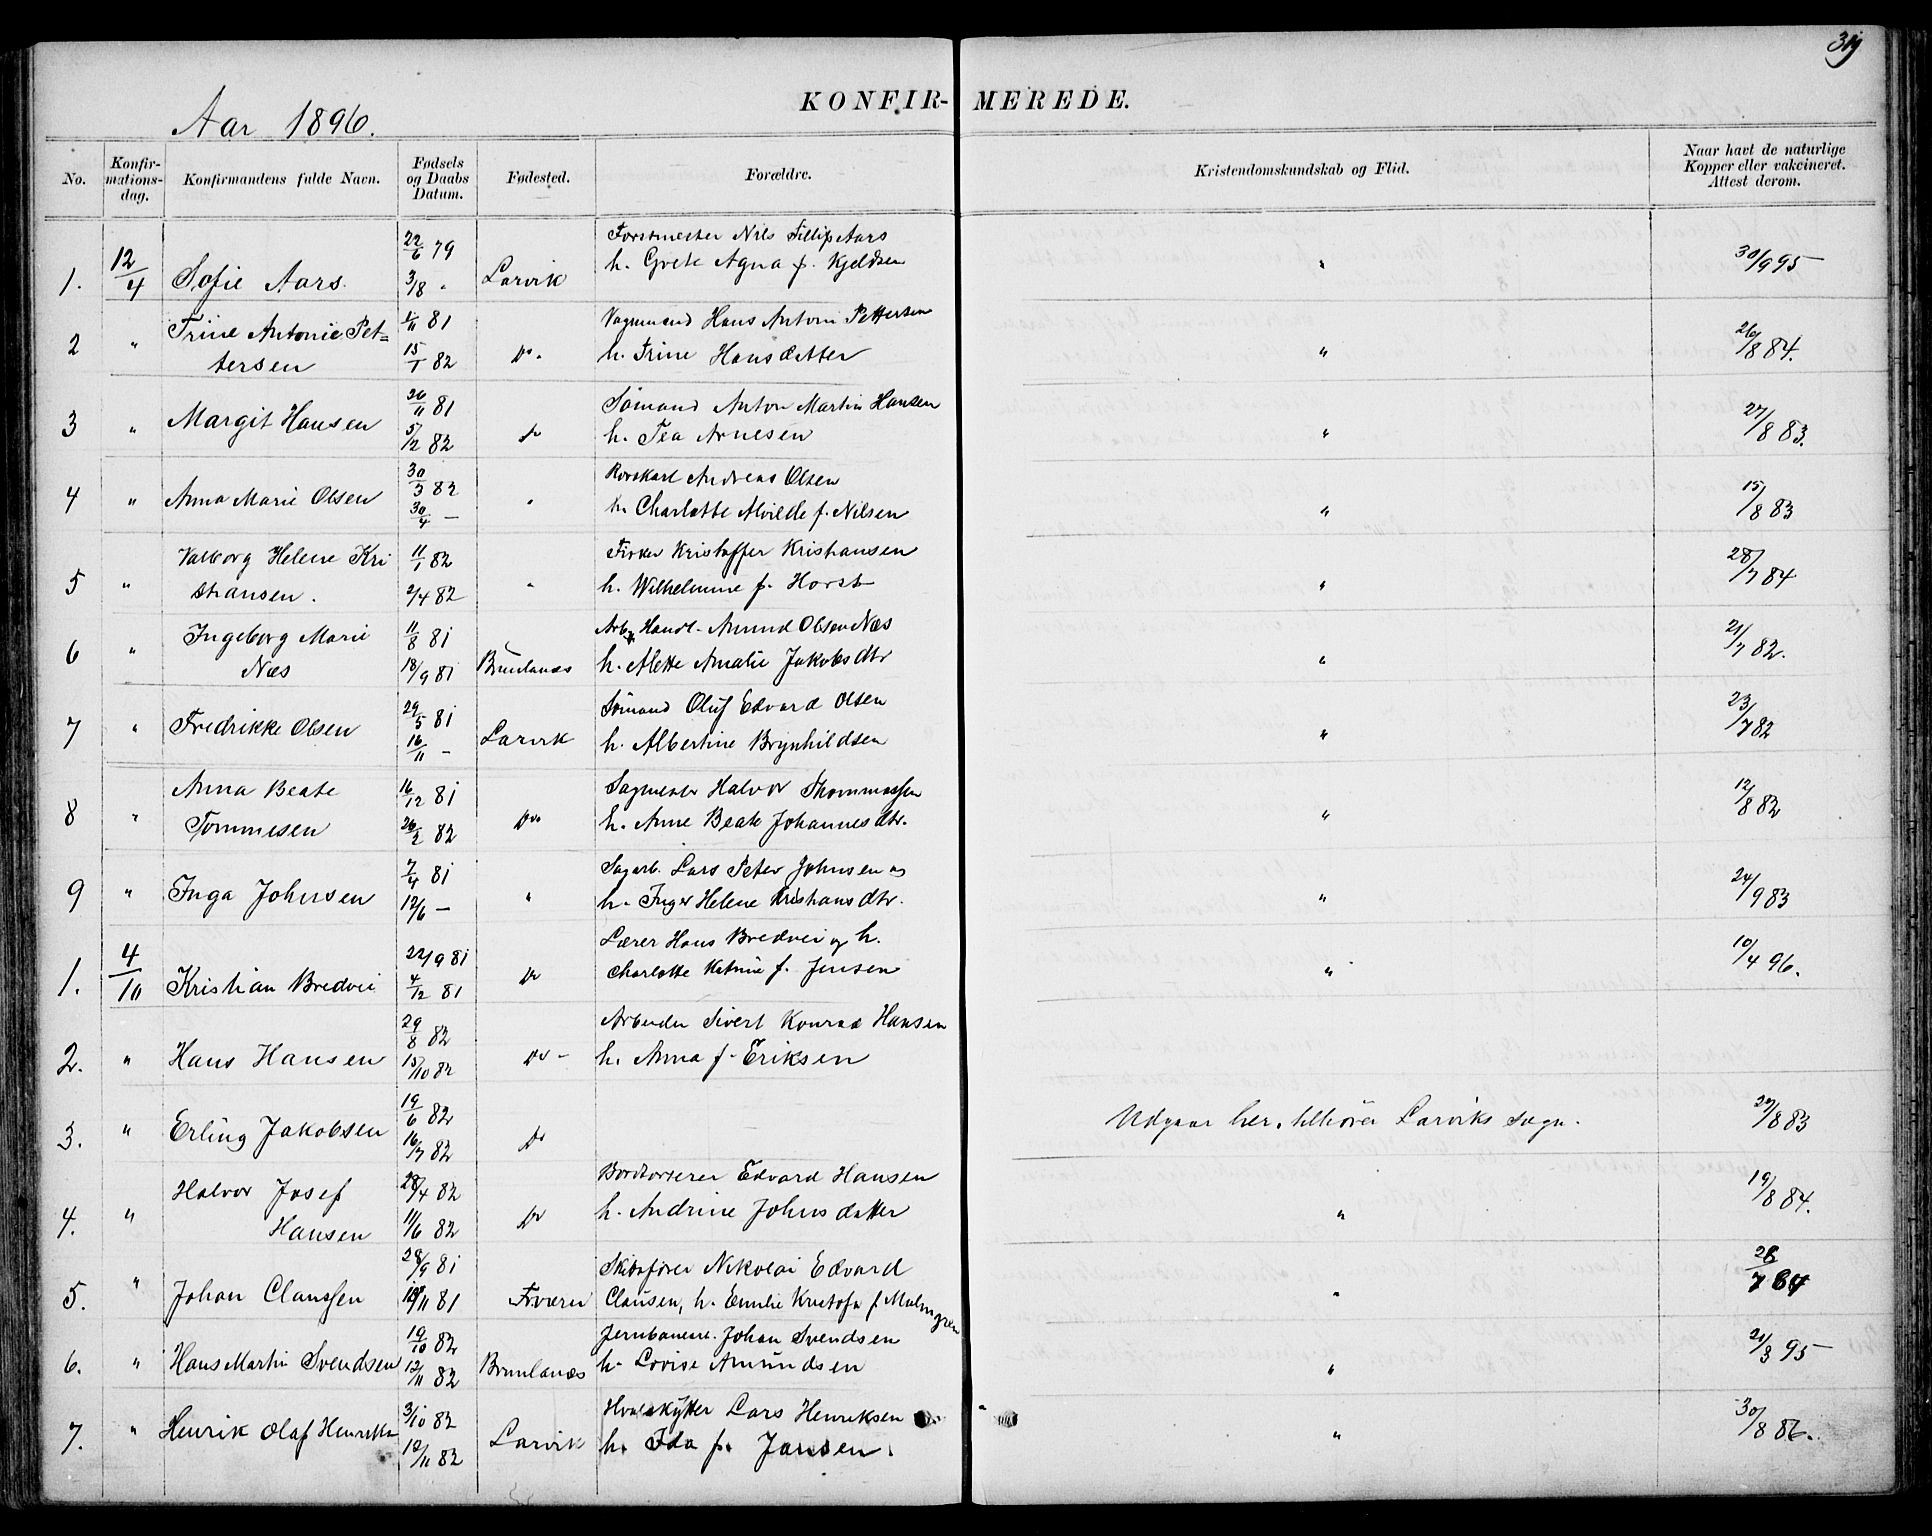 319
KONFIR- MEREDE.
Aar 1896.
No. Konfir-mations-dag. Konfirmandens fulde Navn. Fødsels og Daabs Datum. Fødested. Forældre. Kristendomskundskab og Flid. Naar havt de naturlige Kopper eller vakcineret. Attest derom.
22/6 79 Forstmester Nils Fillip Aars
1. 12/4 Sofie Aars. 3/8 " Larvik h. Grete Agna f. Kjeldsen " 30/9 95
Trine Antonie Pet= 1/11 81 Vognmand Hans Anton Pettersen
2 " tersen 15/1 82 Do. h. Trine Hansdatter " 26/8 84.
26/11 81 Sømand Anton Martin Hansen
3 " Margit Hansen 5/12 82 do h. Tea Arnesen " 27/8 83.
30/3 82 Andreas Olsen
4 " Anna Marie Olsen 30/4 — " h. Charlotte Alvilde f. Nilsen " 15/8 83
Valborg Helene Kri 11/1 82 Kristoffer Kristiansen
5 " stiansen. 2/4 82 " h. Wilhelmine f. Horst " 28/7 84
Ingeborg Marie 11/8 81 Arb. Handl. Amund Olsen Næs
6 " Næs 18/9 81 Brunlanæs h. Alette Amalie Jakobsdtr " 21/7 82.
29/5 81 Sømand Oluf Edvard Olsen
7 " Fredrikke Olsen 16/11 — Larvik h. Albertine Brynhildsen " 23/7 82
Anna Beate 16/12 81 Sagmester Halvor Thommassen
8 " Tommesen 26/2 82 Do h. Anne Beate Johannesdtr. " 12/8 82
7/4 81 Sagarb. Lars Peter Johnsen og
9 " Inga Johnsen 12/6 — " h. Inger Helene Kristiansdtr. " 24/9 83
22/9 81 Lærer Hans Bredvei og h.
1. 4/10 Kristian Bredvei 4/12 81 Do Charlotte Katrine f. Jensen " 10/4 96.
29/8 82 Arbeider Sivert Konrad Hansen
2. " Hans Hansen 15/10 82 Do - h. Anna f. Eriksen
19/6 82
3. " Erling Jakobsen 16/7 82 Do Udgaar her, tilhører Larviks sogn. 27/8 83
Halvor Josef 28/4 82 Edvard Hansen
4. " Hansen 11/6 82 Do h. Andrine Johnsdatter " 19/8 84.
28/9 81 Skibsfører Nikolai Edvard
5. " Johan Clanssen /11 81 Clausen, h. Emilie Kristofa f. Malmgren " 28/7 84
19/10 82 Jernbanearb. Johan Svendsen
6. " Hans Martin Svendsen 12/11 82 Brunlanæs h. Lovise Amundsen " 21/3 95
3/10 82 Hvalskytter Lars Henriksen
7. " Henrik Olaf Henriksn 12/11 82 Larvik h. Ida f. Jansen. " 30/8 86.